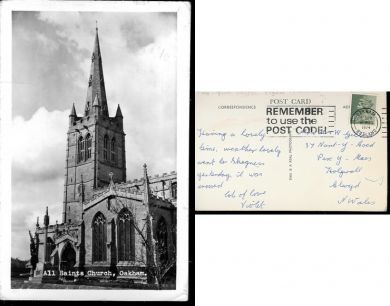 All Saints Church, Oakham.
CORRESPONDENCE
POST CARD
REMEMBER
to use the
POST CODE!
1974
Having a lovely
time, weather lovely
went to Skegness
yesterday it was
lot of love
Violet
37 Nant-y-Coed
Pen-y-Maes
Holywell
Clwyd
N Wales